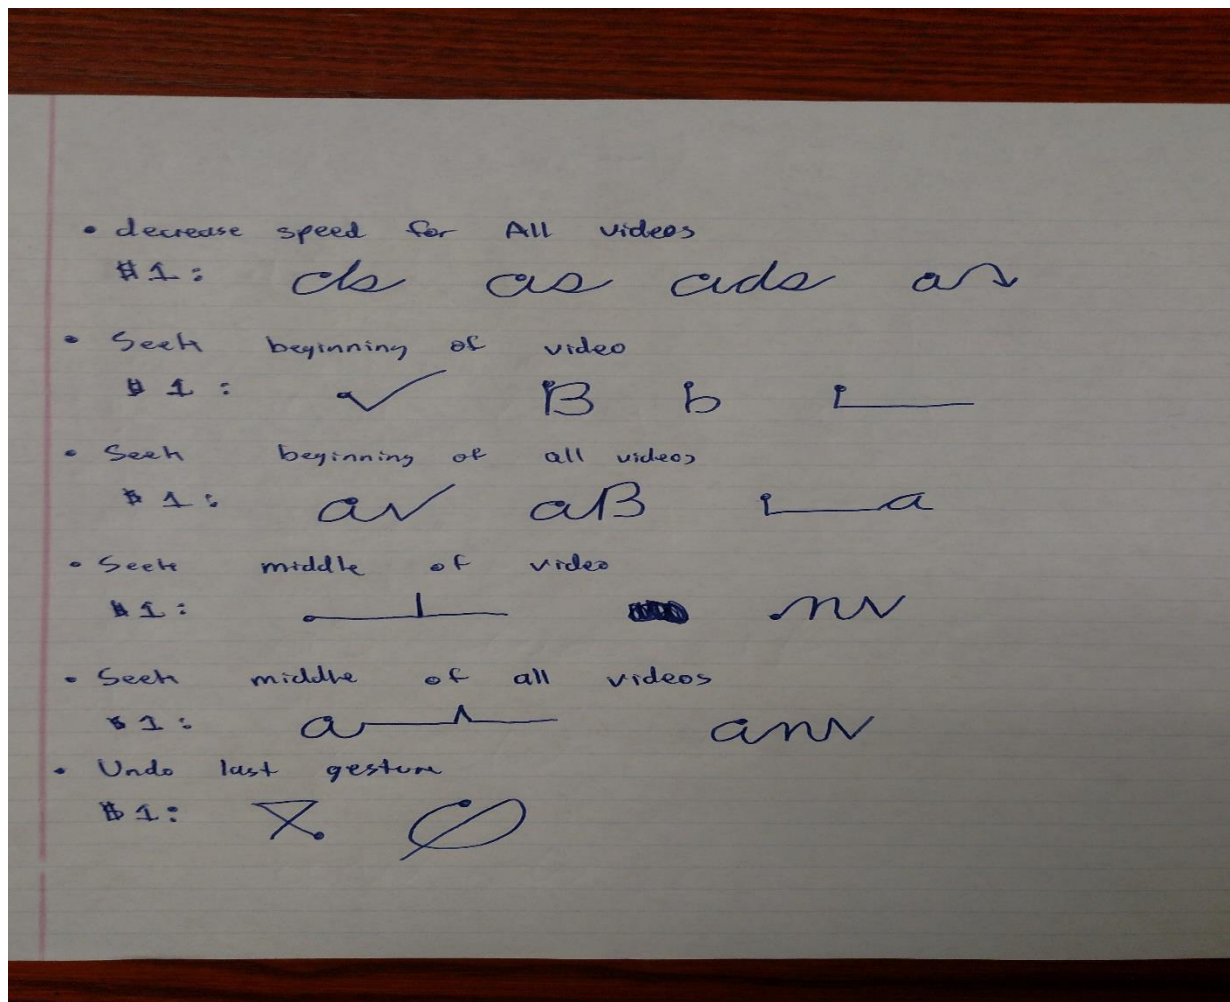 • decrease speed for All videos
$1: ds as ads a
• Seek beginning of video
$1: B b
• Seek beginning of all videos
$1: a aB a
• Seek middle of video
$1:
• Seek middle of all videos
$1: a
• Undo last gesture
$1: